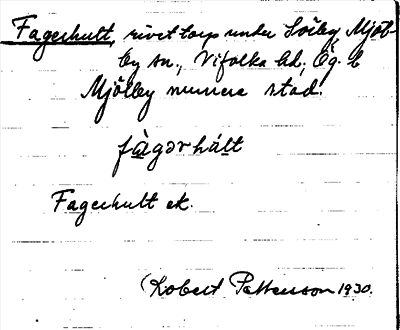 Fagerhult, rivet torp under Sörby, Mjöl-
by sn., Vifolka hd; Ög. l.
Mjölby numera stad.
fàgərhált
Fagerhult ek.
Robert Pettersson 1930.